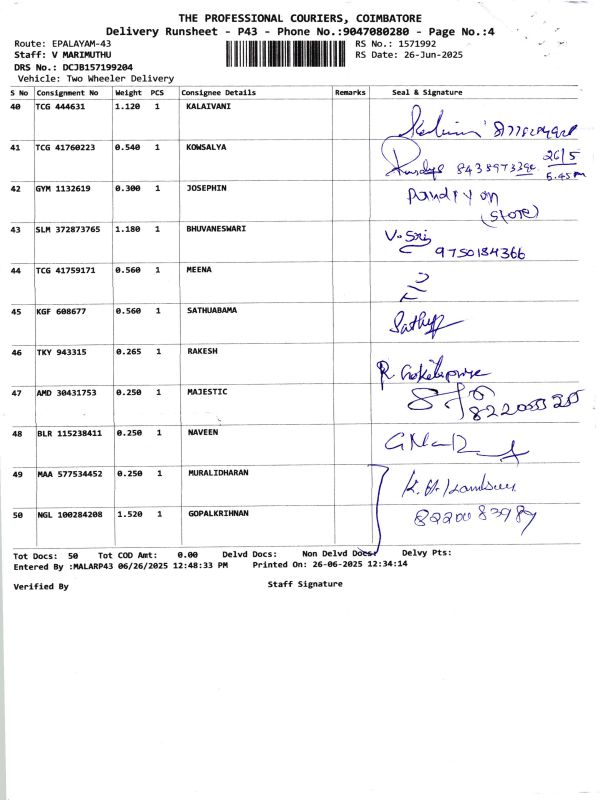 THE PROFESSIONAL COURIERS, COIMBATORE
Delivery Runsheet - P43 - Phone No.:9047080280 - Page No.:4
Route: EPALAYAM-43
RS No.: 1571992
Staff: V MARIMUTHU
RS Date: 26-Jun-2025
DRS No.: DCJB157199204
Vehicle: Two Wheeler Delivery
S No Consignment No Weight PCS Consignee Details Remarks Seal & Signature
40 TCG 444631 1.120 1 KALAIVANI
41 TCG 41760223 0.540 1 KOWSALYA
26/5
5.45 PM
42 GYM 1132619 0.300 1 JOSEPHIN
Pandiyan
(Store)
43 SLM 372873765 1.180 1 BHUVANESWARI
V. Sri
9750184366
44 TCG 41759171 0.560 1 MEENA
45 KGF 608677 0.560 1 SATHUABAMA
46 TKY 943315 0.265 1 RAKESH
47 AMD 30431753 0.250 1 MAJESTIC
48 BLR 115238411 0.250 1 NAVEEN
49 MAA 577534452 0.250 1 MURALIDHARAN
50 NGL 100284208 1.520 1 GOPALKRIHNAN
Tot Docs: 50 Tot COD Amt: 0.00 Delvd Docs: Non Delvd Docs: Delvy Pts:
Entered By :MALARP43 06/26/2025 12:48:33 PM Printed On: 26-06-2025 12:34:14
Verified By
Staff Signature